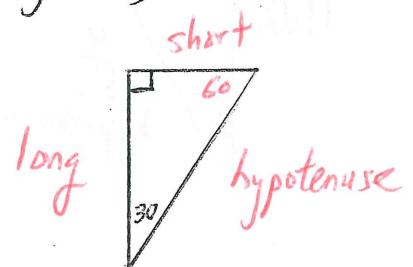 short
60
long
hypotenuse
30